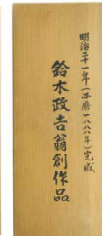 明治二十一年(西暦一八八八年)完成
鈴木政吉翁創作品